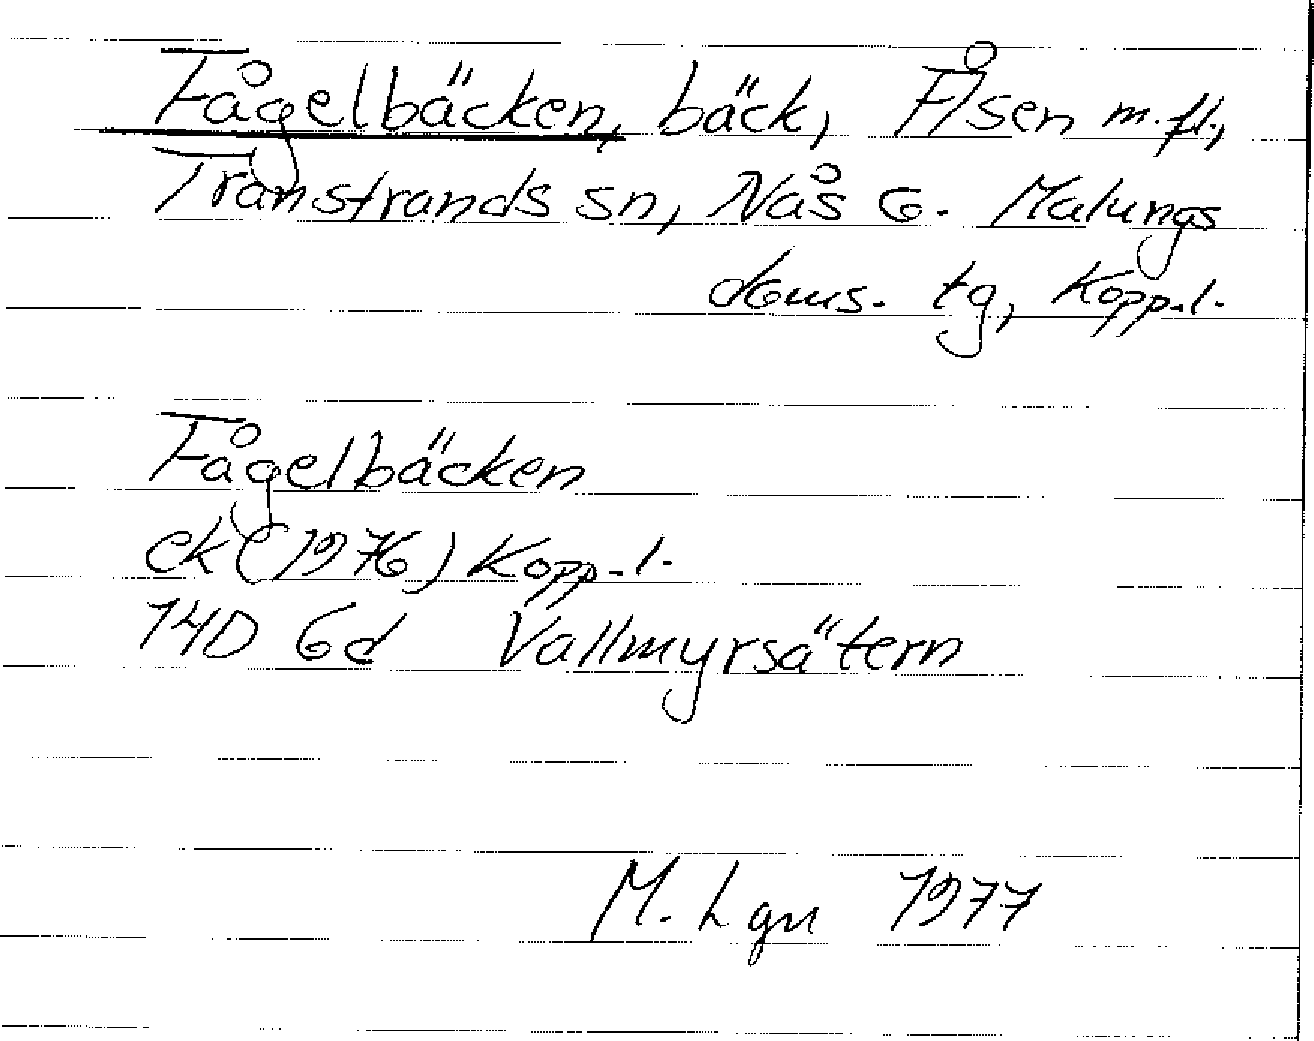 Fågelbäcken, bäck, Åsen m.fl.,
Transtrands sn, Nås o. Malungs
doms. tg, Kopp.l.
Fågelbäcken
ek (1976) Kopp.l.
14D 6d Vallmyrsätern
M. Lgn 1977